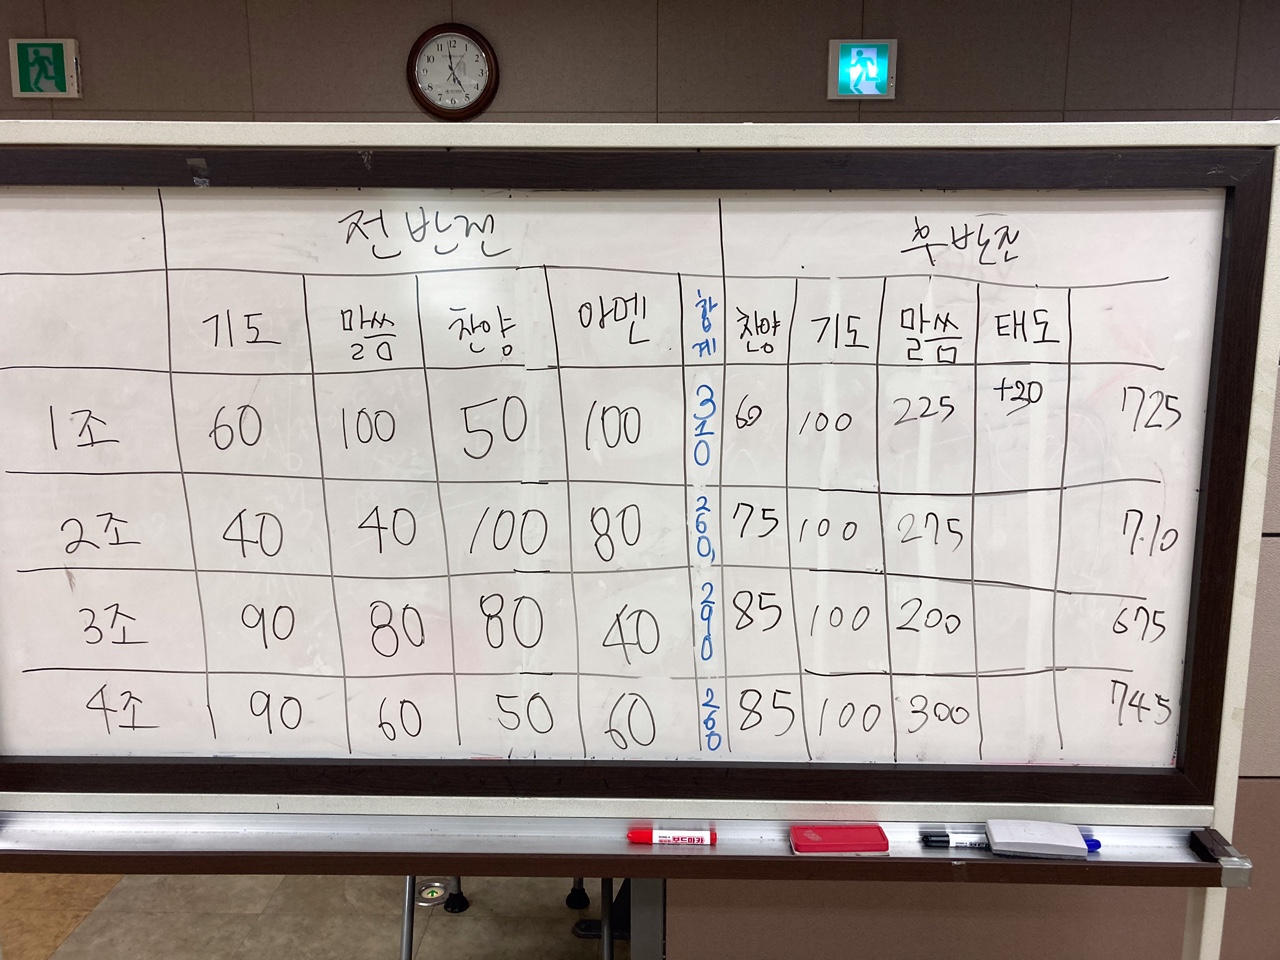 전반전 후반전
기도 말씀 찬양 아멘 합계 찬양 기도 말씀 태도
1조 60 100 50 100 310 60 100 225 +30 725
2조 40 40 100 80 260, 75 100 275 710
3조 90 80 80 40 290 85 100 200 675
4조 90 60 50 60 260 85 100 300 745
보드마카